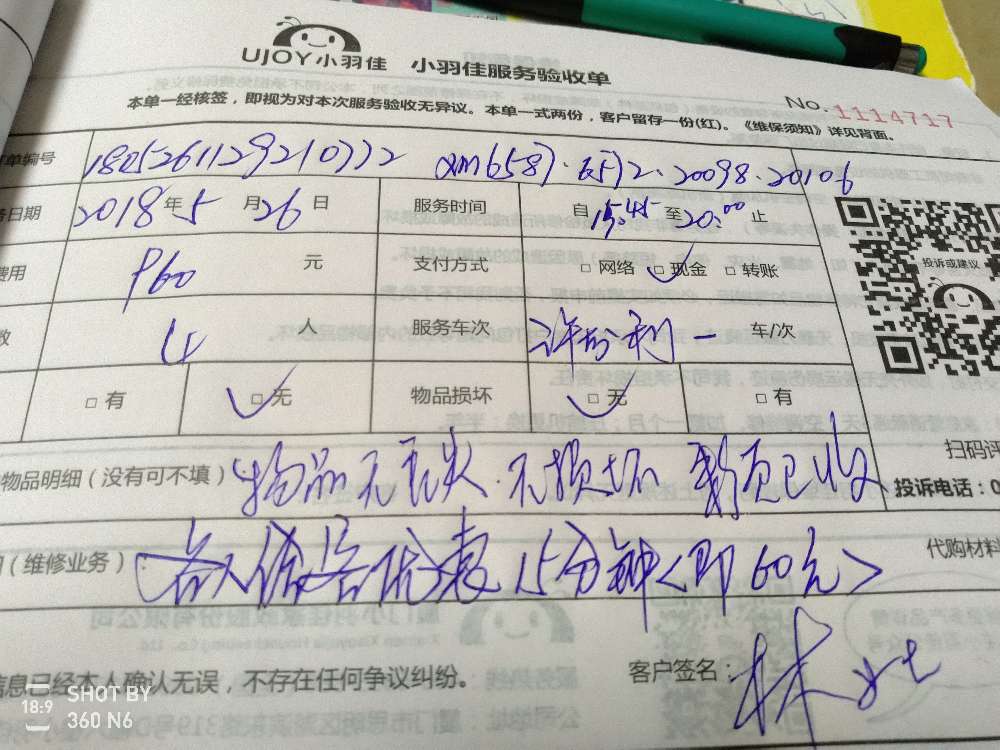 UJOY小羽佳 小羽佳服务验收单
No. 1114717
本单一经核签，即视为对本次服务验收无异议。本单一式两份，客户留存一份(红)。《维保须知》详见背面。
单编号
日期 2018年5月26日 服务时间 自15:45至20:00止
费用 960元 支付方式 □网络 □现金 □转账
投诉或建议
数 4人 服务车次 一 车/次
□有 □无 物品损坏 □无 □有
扫码评
物品明细（没有可不填） 物品无丢失.无损坏 款项已收
投诉电话：0
（维修业务）： 优惠15分钟<即60元>
代购材料
信息已经本人确认无误，不存在任何争议纠纷。 客户签名： 林
SHOT BY
18:9
360 N6